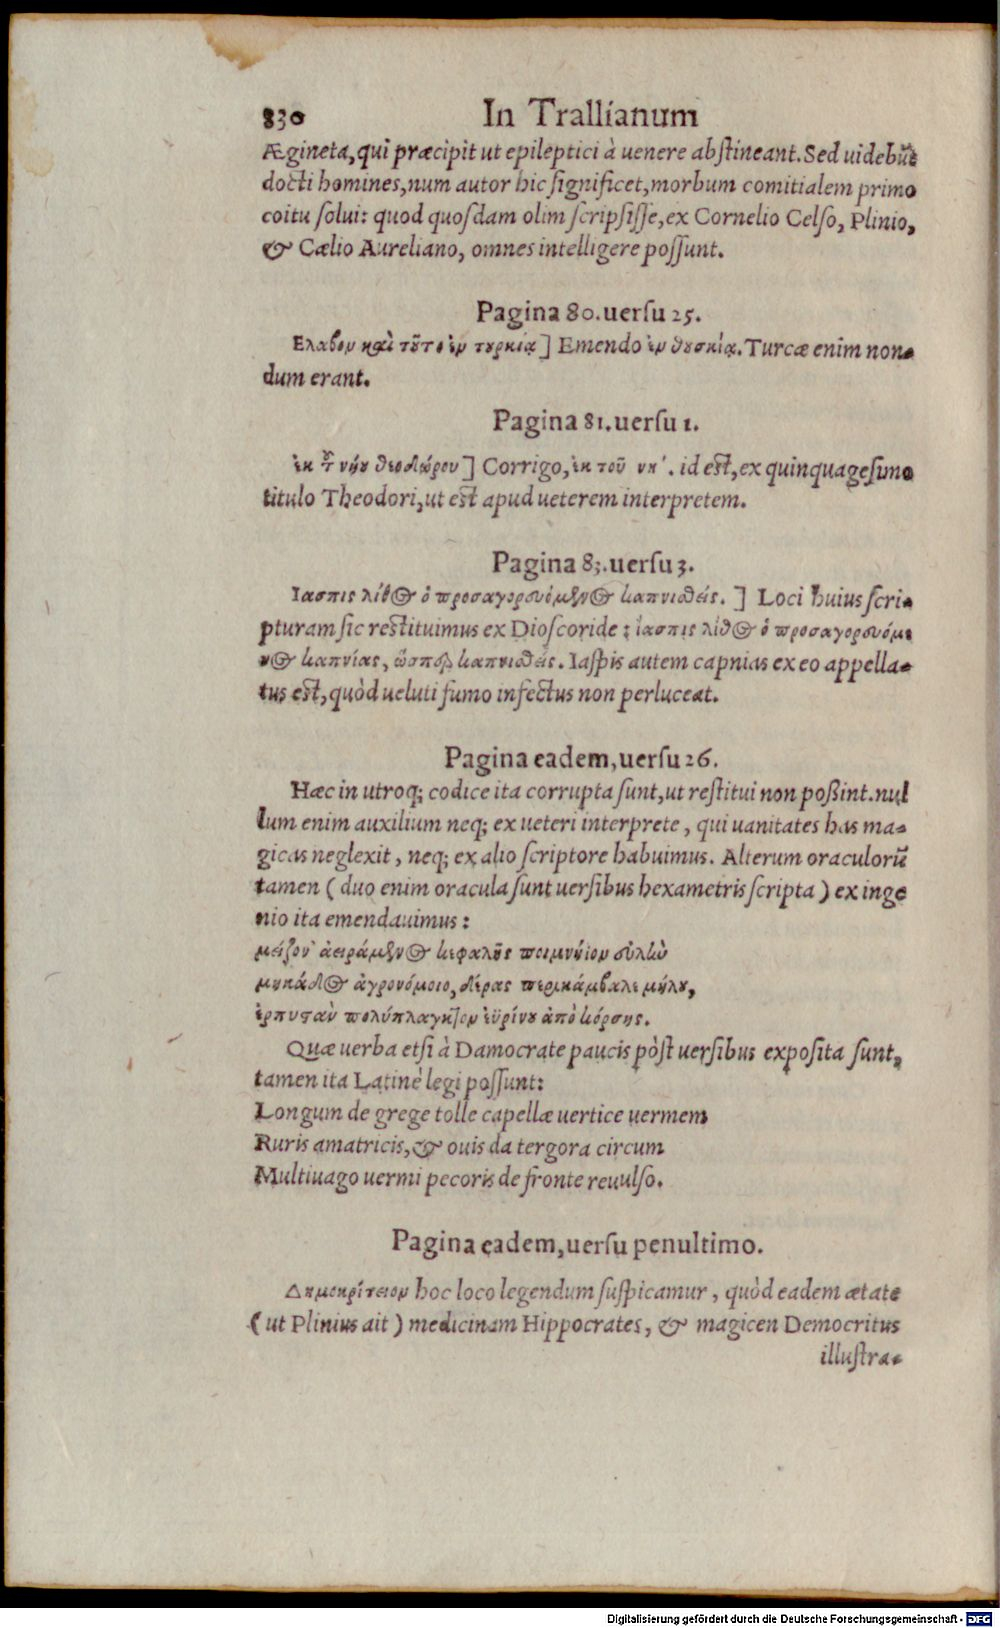 830 In Trallianum
Ægineta, qui præcipit ut epileptici à uenere abstineant. Sed uidebũt
docti homines, num autor hic significet, morbum comitialem primo
coitu solui: quod quosdam olim scripsisse, ex Cornelio Celso, Plinio,
& Cælio Aureliano, omnes intelligere possunt.
Pagina 80. uersu 25.
Ελαβον καὶ τοῦτο ἐν τουρκίᾳ] Emendo ἐν θουσκίᾳ. Turcæ enim non-
dum erant.
Pagina 81. uersu 1.
ἐκ τ͂ νήου θεοδώρου] Corrigo, ἐκ τοῦ νκ΄. id est, ex quinquagesimo
titulo Theodori, ut est apud ueterem interpretem.
Pagina 83. uersu 3.
Ιασπις λίθος ὁ προσαγορευόμενος καπνισθείς.] Loci huius scri-
pturam sic restituimus ex Dioscoride: ἰασπις λίθος ὁ προσαγορευόμε
νος καπνίας, ὥσπερ καπνισθείς. Iaspis autem capnias ex eo appella-
tus est, quòd ueluti fumo infectus non perluceat.
Pagina eadem, uersu 26.
Hæc in utroq; codice ita corrupta sunt, ut restitui non poßint. nul
lum enim auxilium neq; ex ueteri interprete, qui uanitates has ma-
gicas neglexit, neq; ex alio scriptore habuimus. Alterum oraculorũ
tamen (duo enim oracula sunt uersibus hexametris scripta) ex inge
nio ita emendauimus:
μείζον᾽ ἀειράμενος κεφαλῆς ποιμνήϊον εὐλὴν
μηκάδος ἀγρονόμοιο, δέρας περικάμβαλε μήλου,
ἑρπυσὰν πολύπλαγκτον ἐϋρίνου ἀπὸ κόρσης.
Quæ uerba etsi à Damocrate paucis pòst uersibus exposita sunt,
tamen ita Latinè legi possunt:
Longum de grege tolle capellæ uertice uermem
Ruris amatricis, & ouis da tergora circum
Multiuago uermi pecoris de fronte reuulso.
Pagina eadem, uersu penultimo.
Δημοκρίτειον hoc loco legendum suspicamur, quòd eadem ætate
(ut Plinius ait) medicinam Hippocrates, & magicen Democritus
illustra-
Digitalisierung gefördert durch die Deutsche Forschungsgemeinschaft - DFG